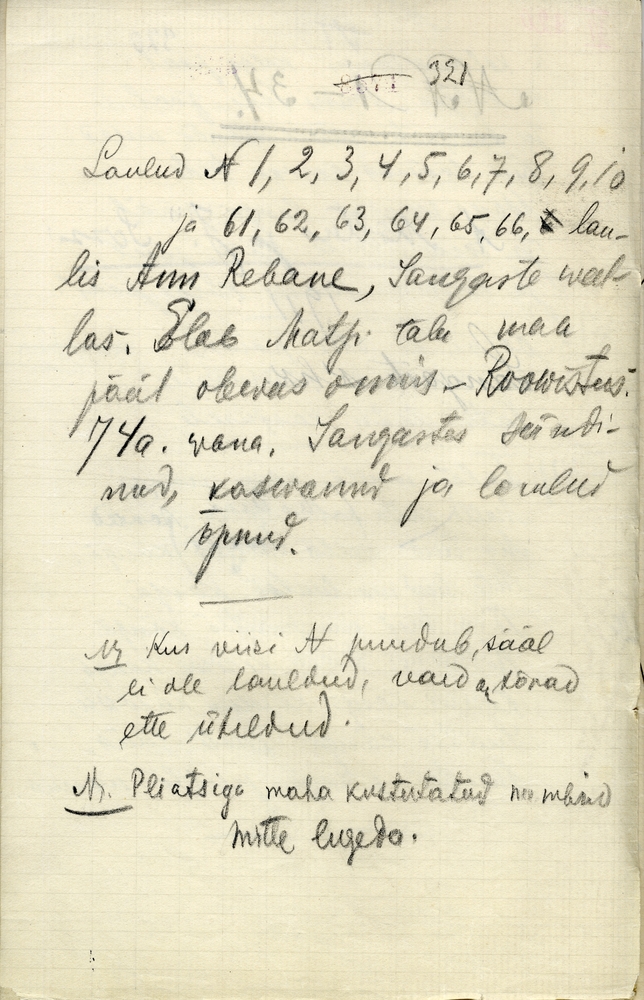 321
Laulud N 1, 2, 3, 4, 5, 6, 7, 8, 9, 10
ja 61, 62, 63, 64, 65, 66, lau-
lis Ann Rebane, Sangaste wal-
las. Elab Matsi talu maa
pääl olevas onnis – Roowistus.
74 a. wana. Sangastes sündi-
nud, kaswanud ja laulud
õpnud.
Kus viisi N puudub, sääl
ei ole lauldud, vaid sõnad
ette üteldud.
Pliatsiga maha kustutatud nombrid
mitte lugeda.